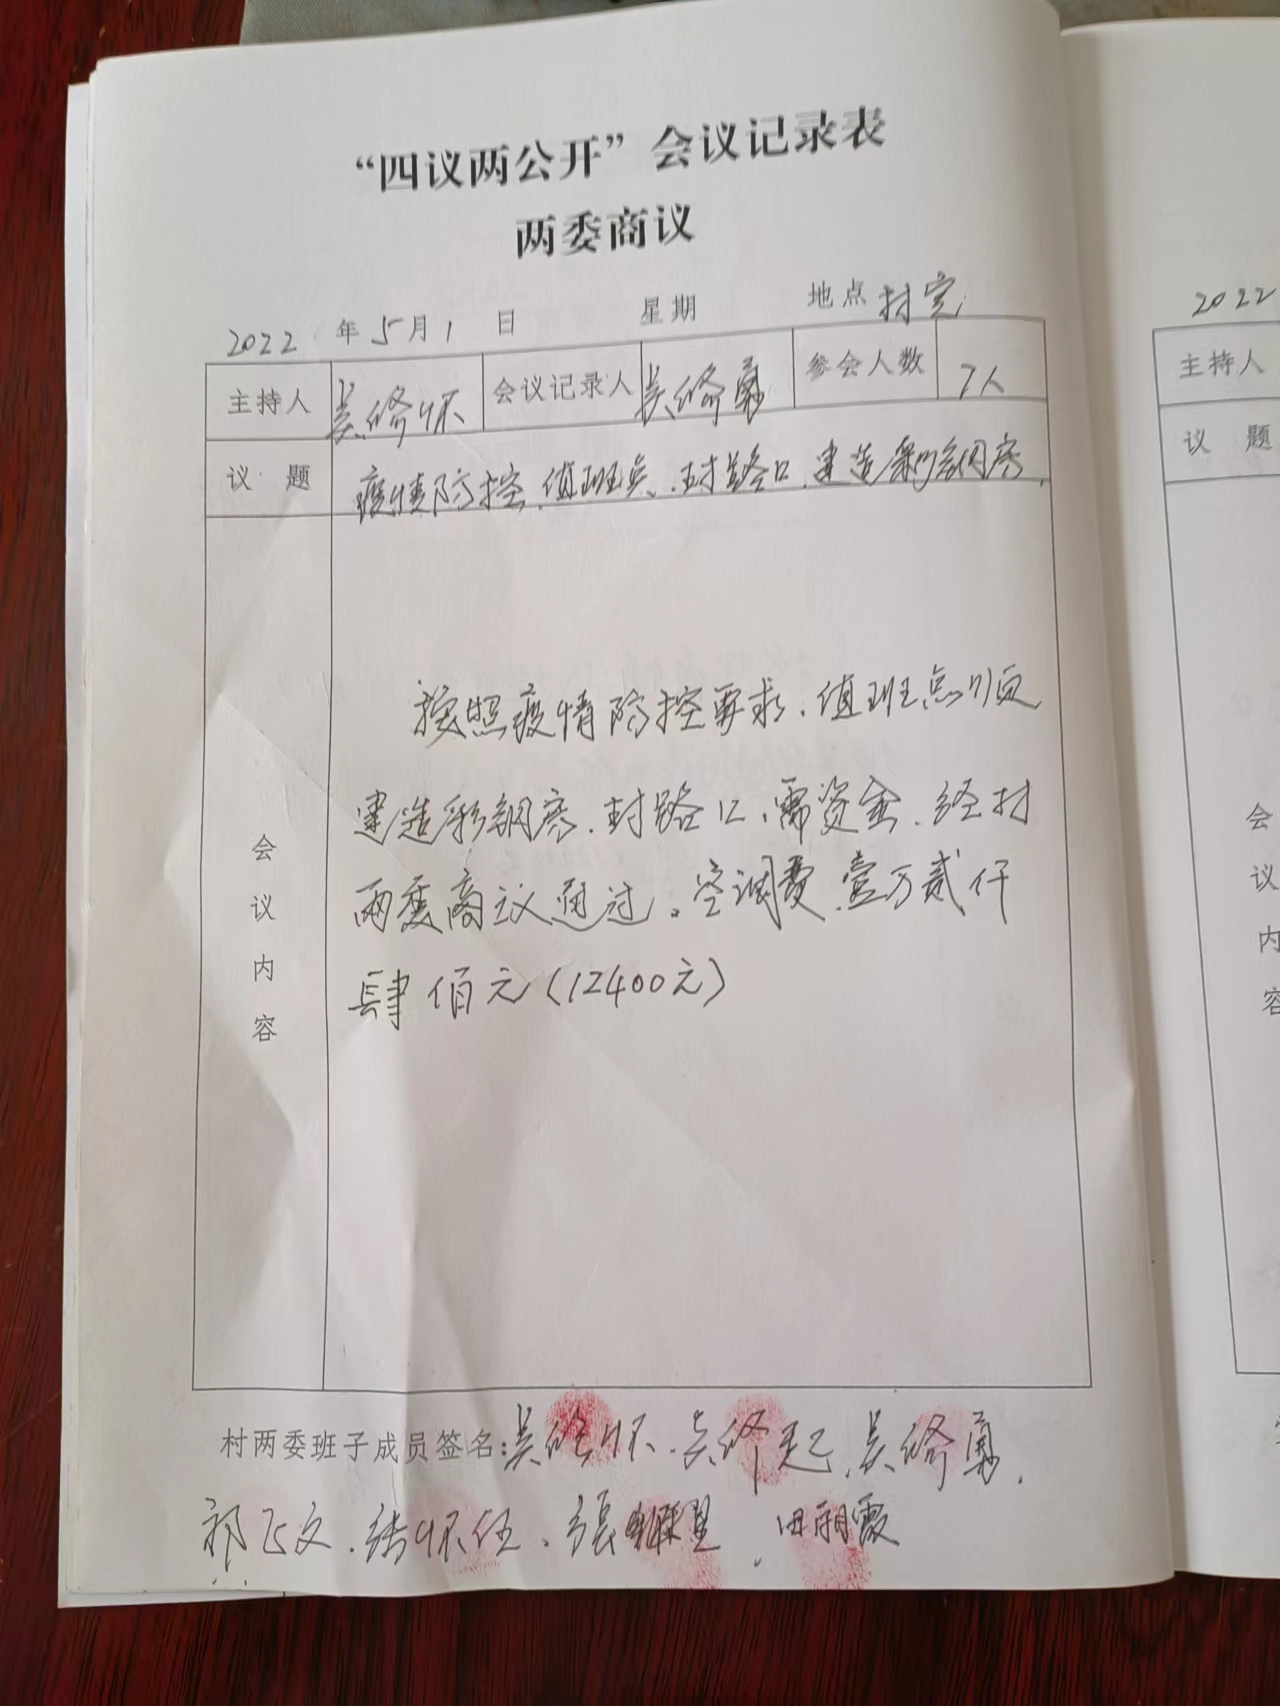 “四议两公开”会议记录表
两委商议
2022 年 5 月 1 日 星期 地点 村室
主持人 吴修怀 会议记录人 吴修勇 参会人数 7人
议 题 疫情防控、值班点、封路口、建造彩钢房
按照疫情防控要求、值班点须
建造彩钢房、封路口、需资金、经村
两委商议通过。空调费壹万贰仟
肆佰元(12400元)
会议内容
村两委班子成员签名:吴修怀、吴修起、吴修勇、
祁飞文、张怀伍、張 田朝霞
2022
主持人
议 题
会议内容